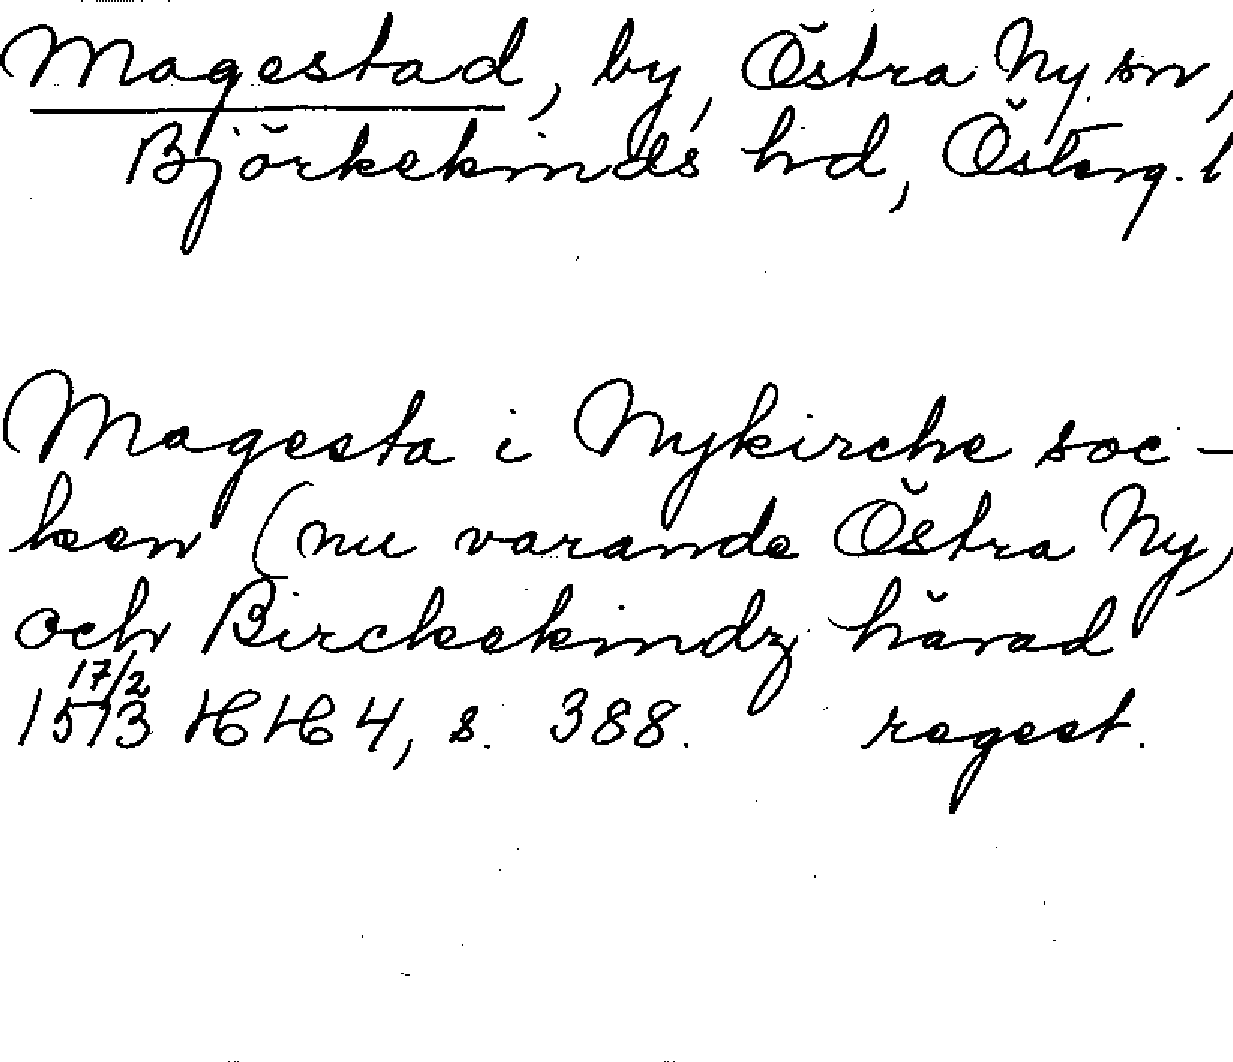 Magestad, by, Östra Ny sn,
Björkekinds hd, Österg. l
Magesta i Nykirche soc-
ken (nu varande Östra Ny,
och Birckekindz härad
17/2
1573 HH 4, s. 388. regest.